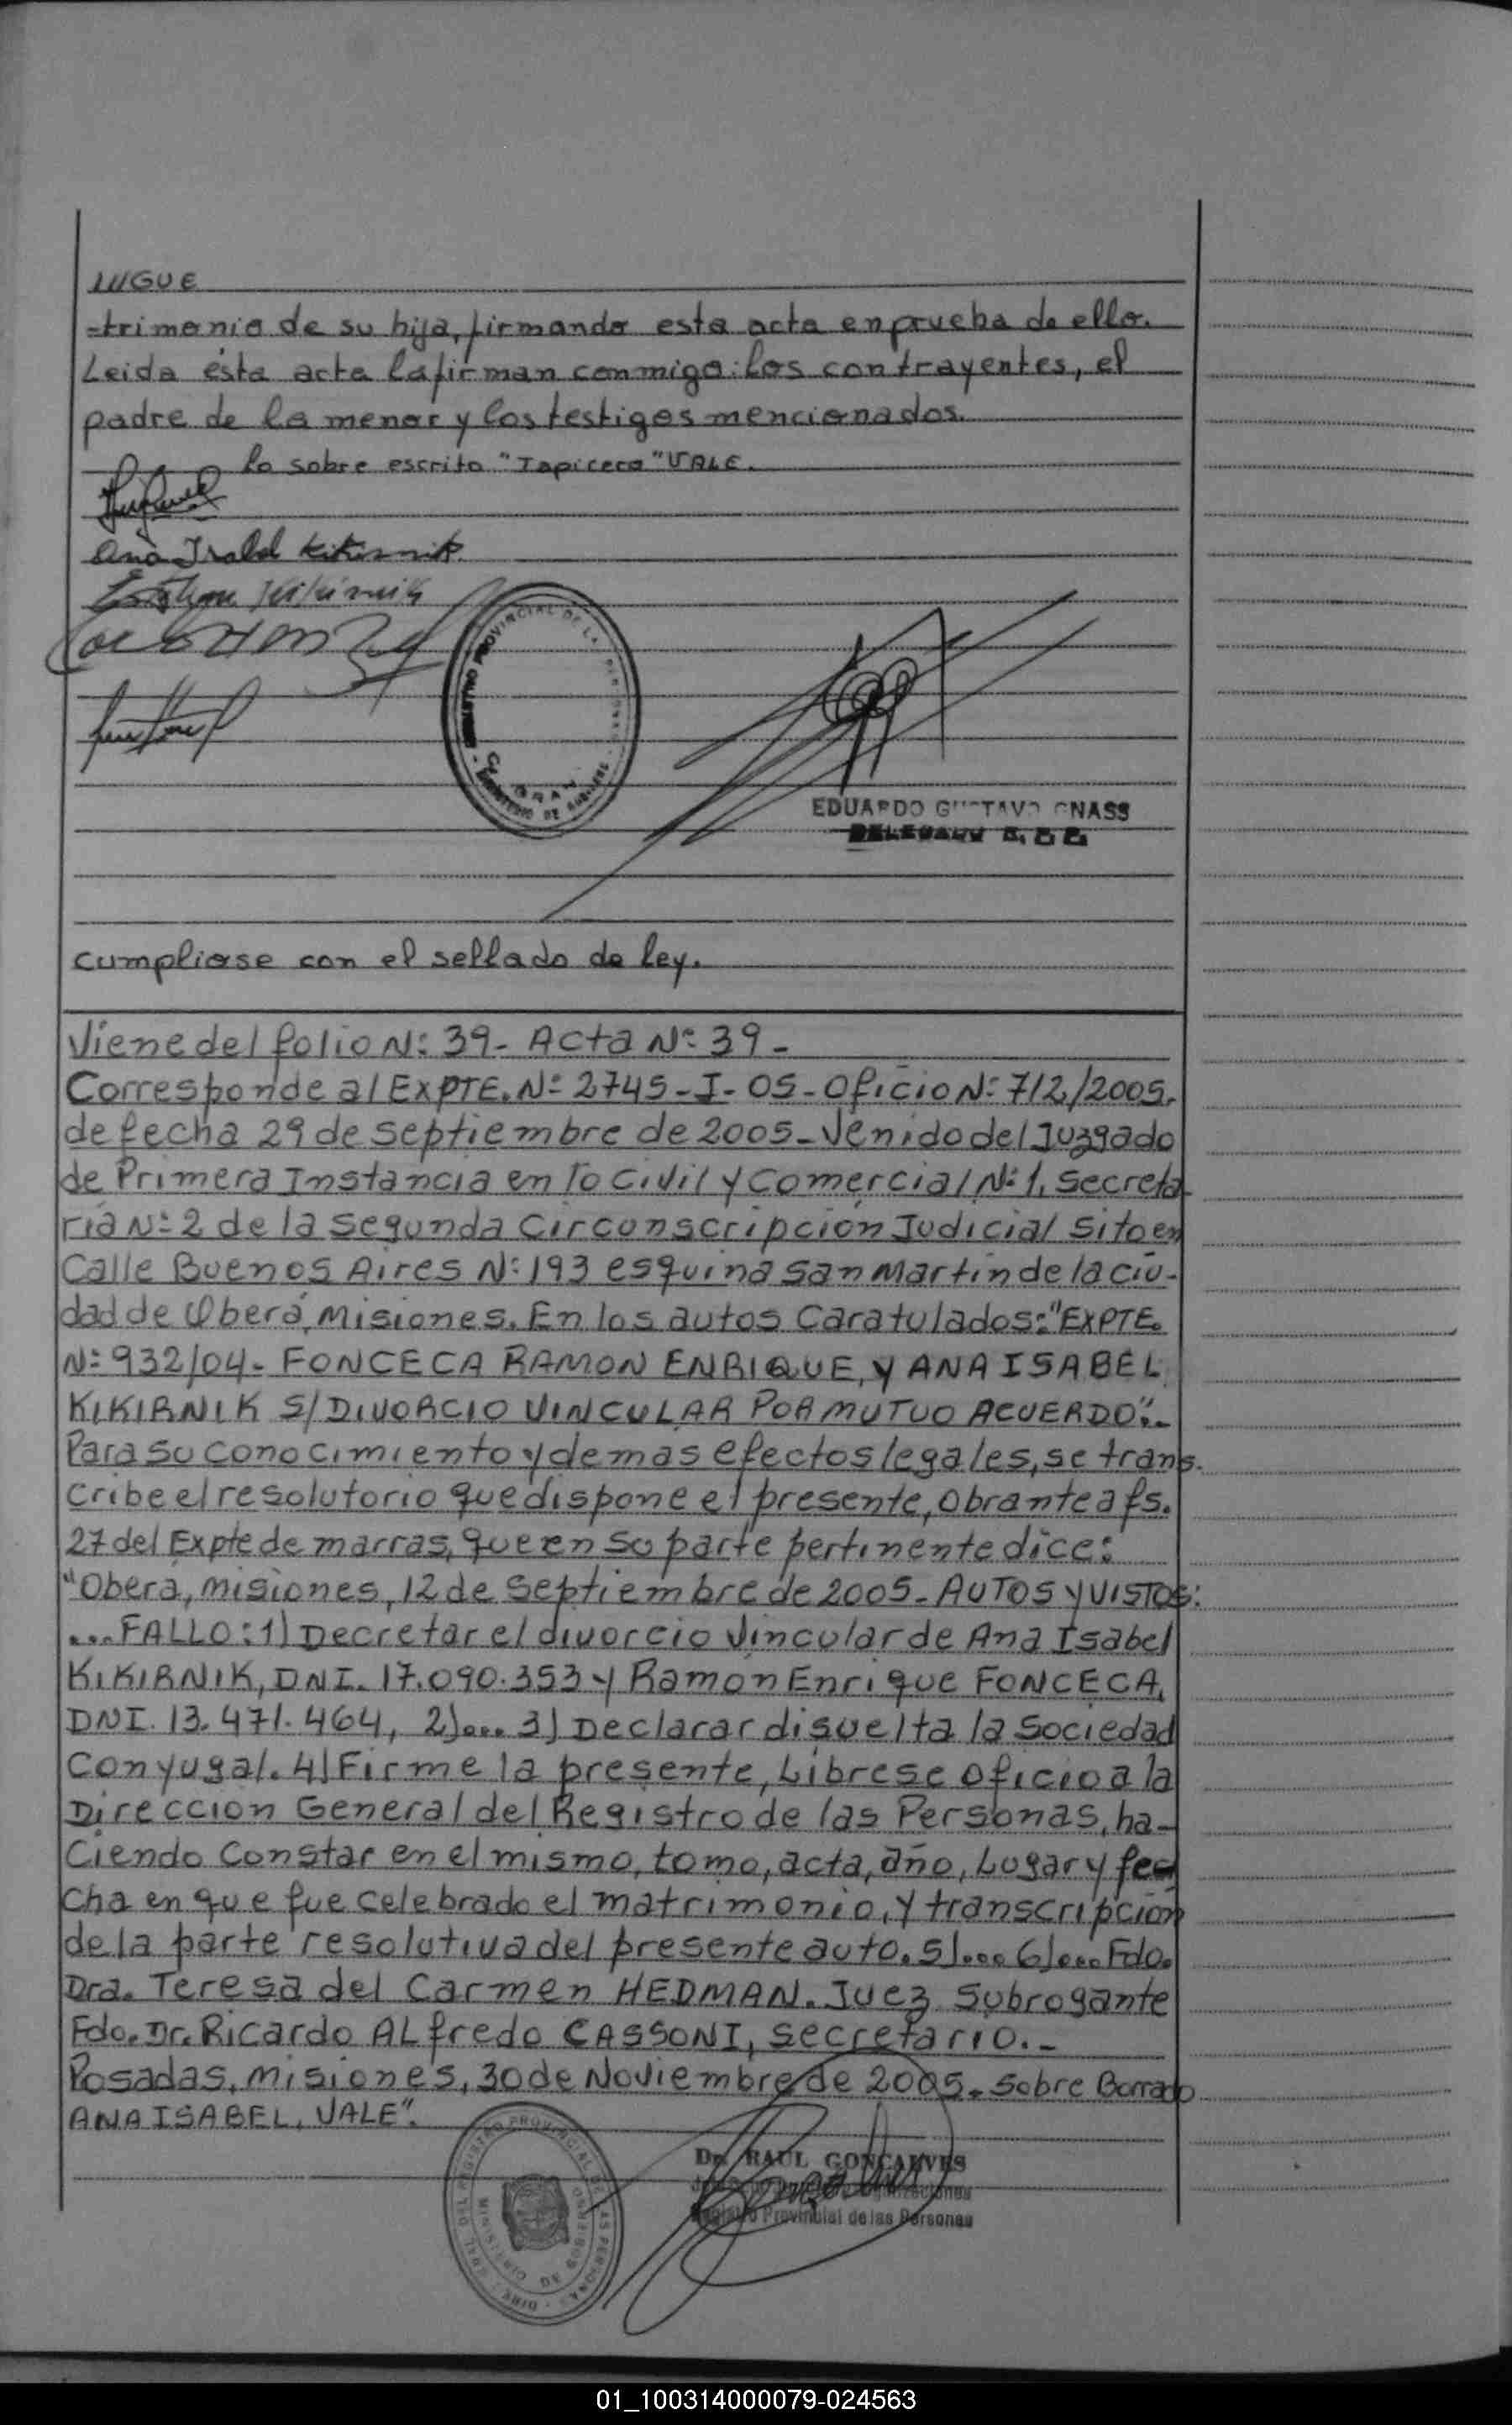 SIGUE
-trimonio de su hija, firmando esta acta en prueba de ello.
Leida ésta acta la firman conmigo: los contrayentes, el
padre de la menor y los testigos mencionados.
lo sobre escrito "Tapicero" VALE.
Ana Isabel Kikirnik
Kikirnik
REGISTRO PROVINCIAL DE LAS PERSONAS
EDUARDO GUSTAVO GNASS
DELEGADO
cumpliose con el sellado de ley.
Viene del folio Nº 39- Acta Nº 39-
Corresponde al EXPTE. Nº 2745-I-05-Oficio Nº 712/2005.
de fecha 29 de septiembre de 2005-Venido del Juzgado
de Primera Instancia en lo Civil y Comercial Nº 1, Secreta-
ria Nº 2 de la Segunda Circonscripción Judicial Sito en
Calle Buenos Aires Nº 193 esquina San Martín de la ciu-
dad de Oberá, Misiones. En los autos Caratulados: "EXPTE.
Nº 932/04- FONCECA RAMON ENRIQUE, Y ANA ISABEL
KIKIRNIK S/ DIVORCIO VINCULAR POR MUTUO ACUERDO".-
Para su conocimiento y demas efectos legales, se trans-
cribe el resolutorio que dispone el presente, obrante a fs.
27 del Expte de marras, que en su parte pertinente dice:
"Obera, misiones, 12 de Septiembre de 2005- AUTOS Y VISTOS:
...FALLO: 1) Decretar el divorcio Vincular de Ana Isabel
KIKIRNIK, DNI. 17.090.353 y Ramon Enrique FONCECA,
DNI. 13.471.464, 2)... 3) Declarar disuelta la Sociedad
Conyugal. 4) Firme la presente, Librese oficio a la
Direccion General del Registro de las Personas, ha-
Ciendo Constar en el mismo, tomo, acta, año, Lugar y fe-
cha en que fue celebrado el matrimonio, y transcripción
de la parte resolutiva del presente auto. 5)... 6)... Fdo.
Dra. Teresa del Carmen HEDMAN. Juez Subrogante
Fdo. Dr. Ricardo ALfredo CASSONI, secretario.-
Posadas, misiones, 30 de Noviembre de 2005. Sobre Borrado
ANA ISABEL, VALE".
Dr. RAUL GONCALVES
Registro Provincial de las Personas
01_100314000079-024563